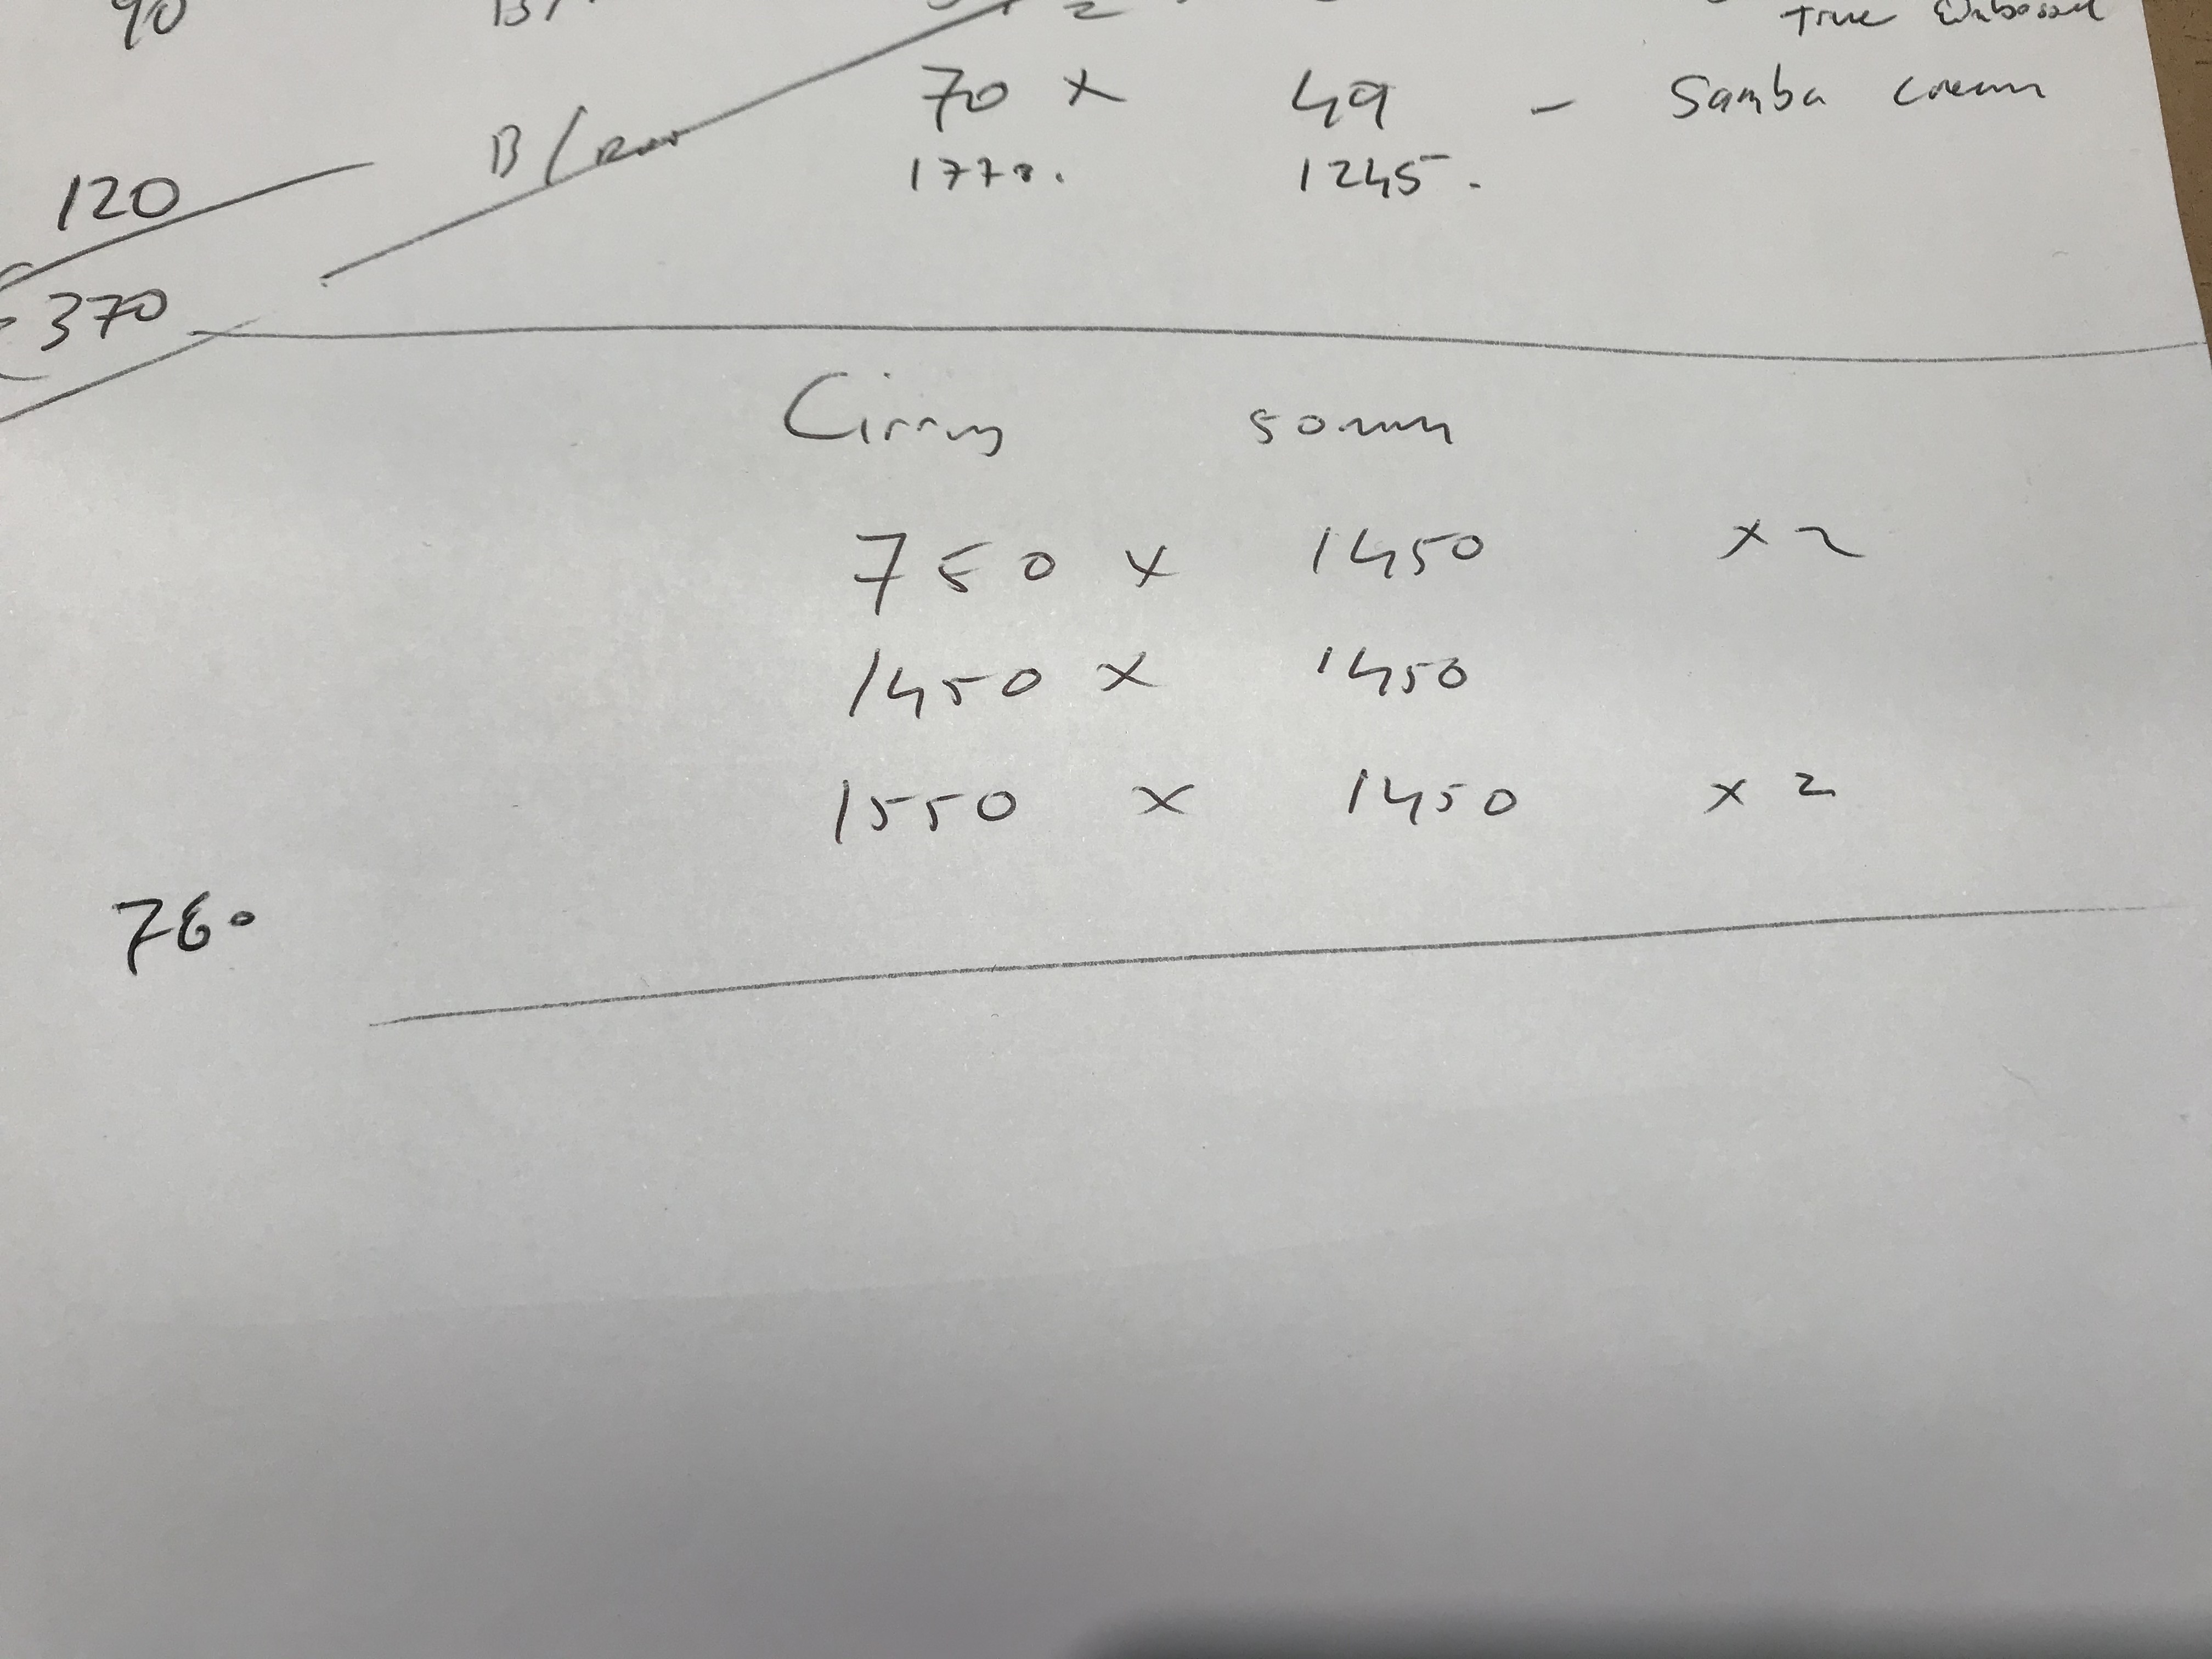 90 B/
True Embossed
70 x 49 - Samba cream
120 B/
1770. 1245.
£370
Cirrus 50mm
750 x 1450 x2
1450 x 1450
1550 x 1450 x 2
760